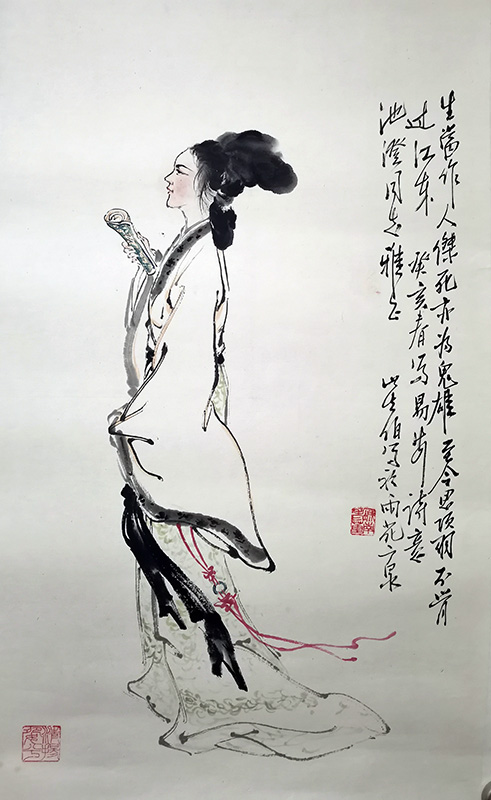 生當作人傑死亦为鬼雄至今思项羽不肯
过江东 癸亥春写易安诗意
池澄同志雅正 伯写於雨花泉